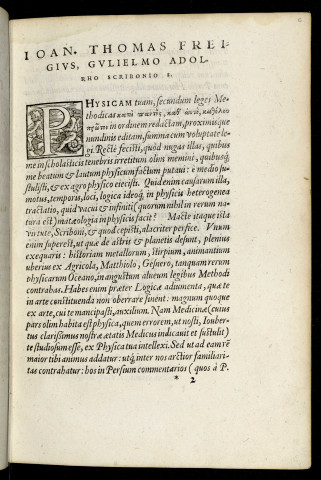 IOAN. THOMAS FREI-
GIVS, GVLIELMO ADOL-
PHO SCRIBONIO S.
PHYSICAM tuam, secundum leges Me-
thodicas κατὰ παντὸς, καθ' αὑτὸ, καθόλου
πρῶτον in ordinem redactam, proximisque
nundinis editam, summa cum voluptate le-
gi. Rectè fecisti, quòd nugas illas, quibus
me in scholasticis tenebris irretitum olim memini, quibusq́;
me beatum & lautum physicum factum putaui: è medio su-
stulisti, & ex agro physico eiecisti. Quid enim causarum illa,
motus, temporis, loci, logica ideoq́; in physicis heterogenea
tractatio, quid vacui & infiniti (quorum nihil in rerum na-
tura est) matæologia in physicis facit? Macte itaque ista
virtute, Scriboni, & quod cepisti, alacriter perfice. Vnum
enim superest, ut quæ de astris & planetis desunt, plenius
exequaris: historiam metallorum, stirpium, animantium
uberius ex Agricola, Matthiolo, Gesnero, tanquam rerum
physicarum Oceano, in angustum alueum legibus Methodi
contrahas. Habes enim præter Logicæ adiumenta, quæ te
in arte constituenda non oberrare sinent: magnum quoque
ex arte, cui te mancipasti, auxilium. Nam Medicinæ (cuius
pars olim habita est physica, quem errorem, ut nosti, Iouber-
tus clarissimus nostræ ætatis Medicus indicauit et sustulit)
te studiosum esse, ex Physica tua intellexi. Sed ut ad eam rẽ
maior tibi animus addatur: utq́; inter nos arctior familiari-
tas contrahatur: hos in Persium commentarios (quos à P.
* 2